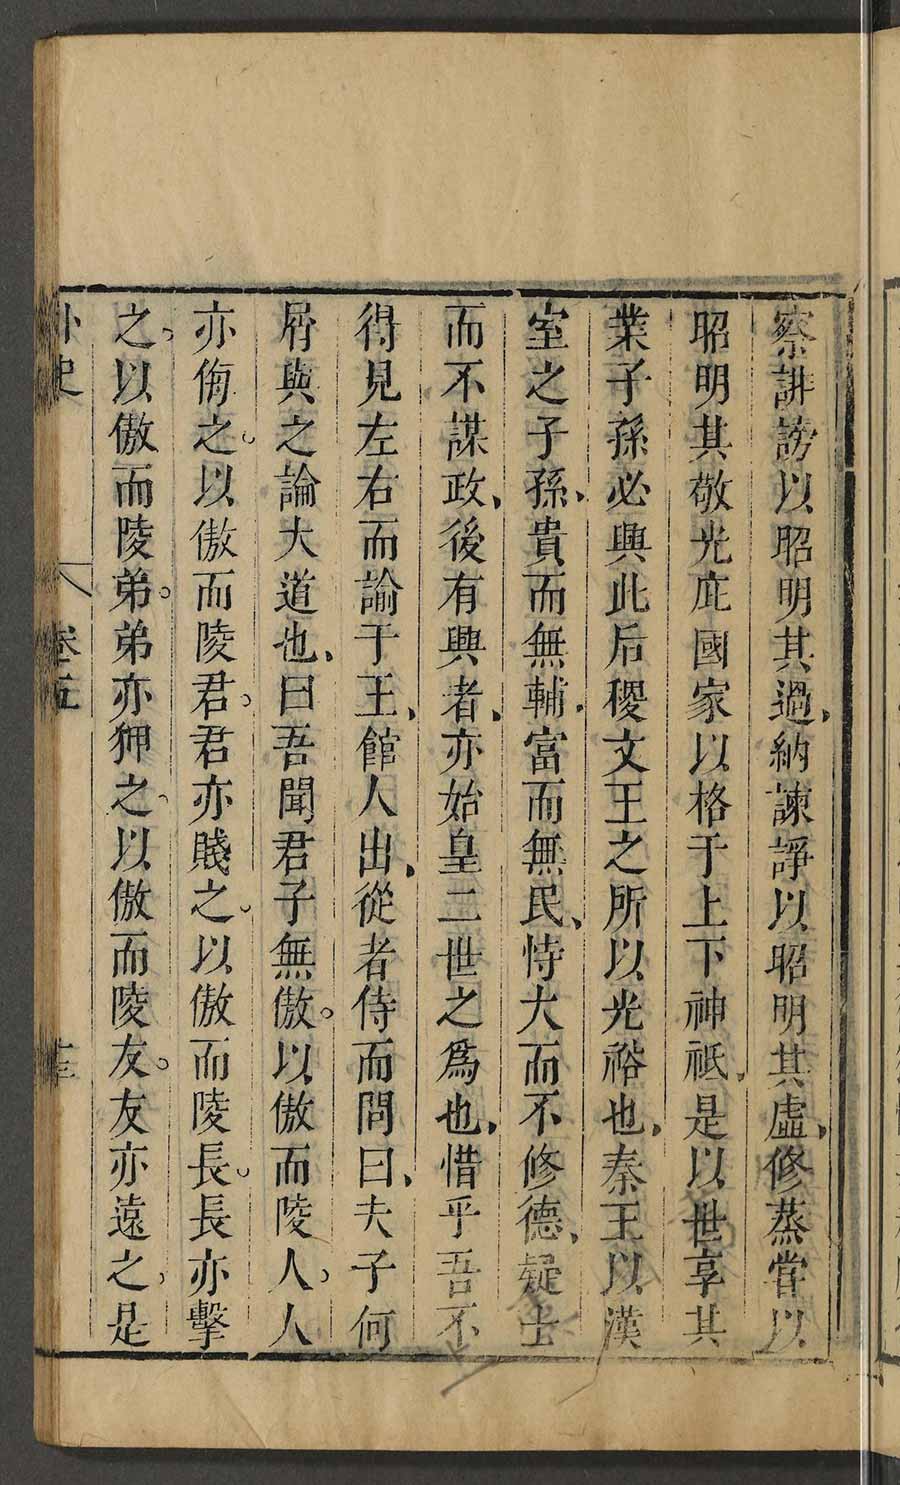 察誹謗以昭明其過、納諫諍以昭明其虛、修蒸嘗以
昭明其敬光庇國家以格于上下神祇、是以世享其
業子孫必興此后稷文王之所以光裕也、秦王以漢
室之子孫、貴而無輔、富而無民、恃大而不修德、疑士
而不謀政、後有興者、亦始皇二世之爲也、惜乎吾不
得見左右而論于王、館人出、從者侍而問曰、夫子何
屑與之論大道也、曰吾聞君子無傲。以傲而陵人、人
亦侮之。以傲而陵君。君亦賤之。以傲而陵長。長亦擊
之。以傲而陵弟。弟亦狎之、以傲而陵友。友亦遠之、是
外史 卷五 十三